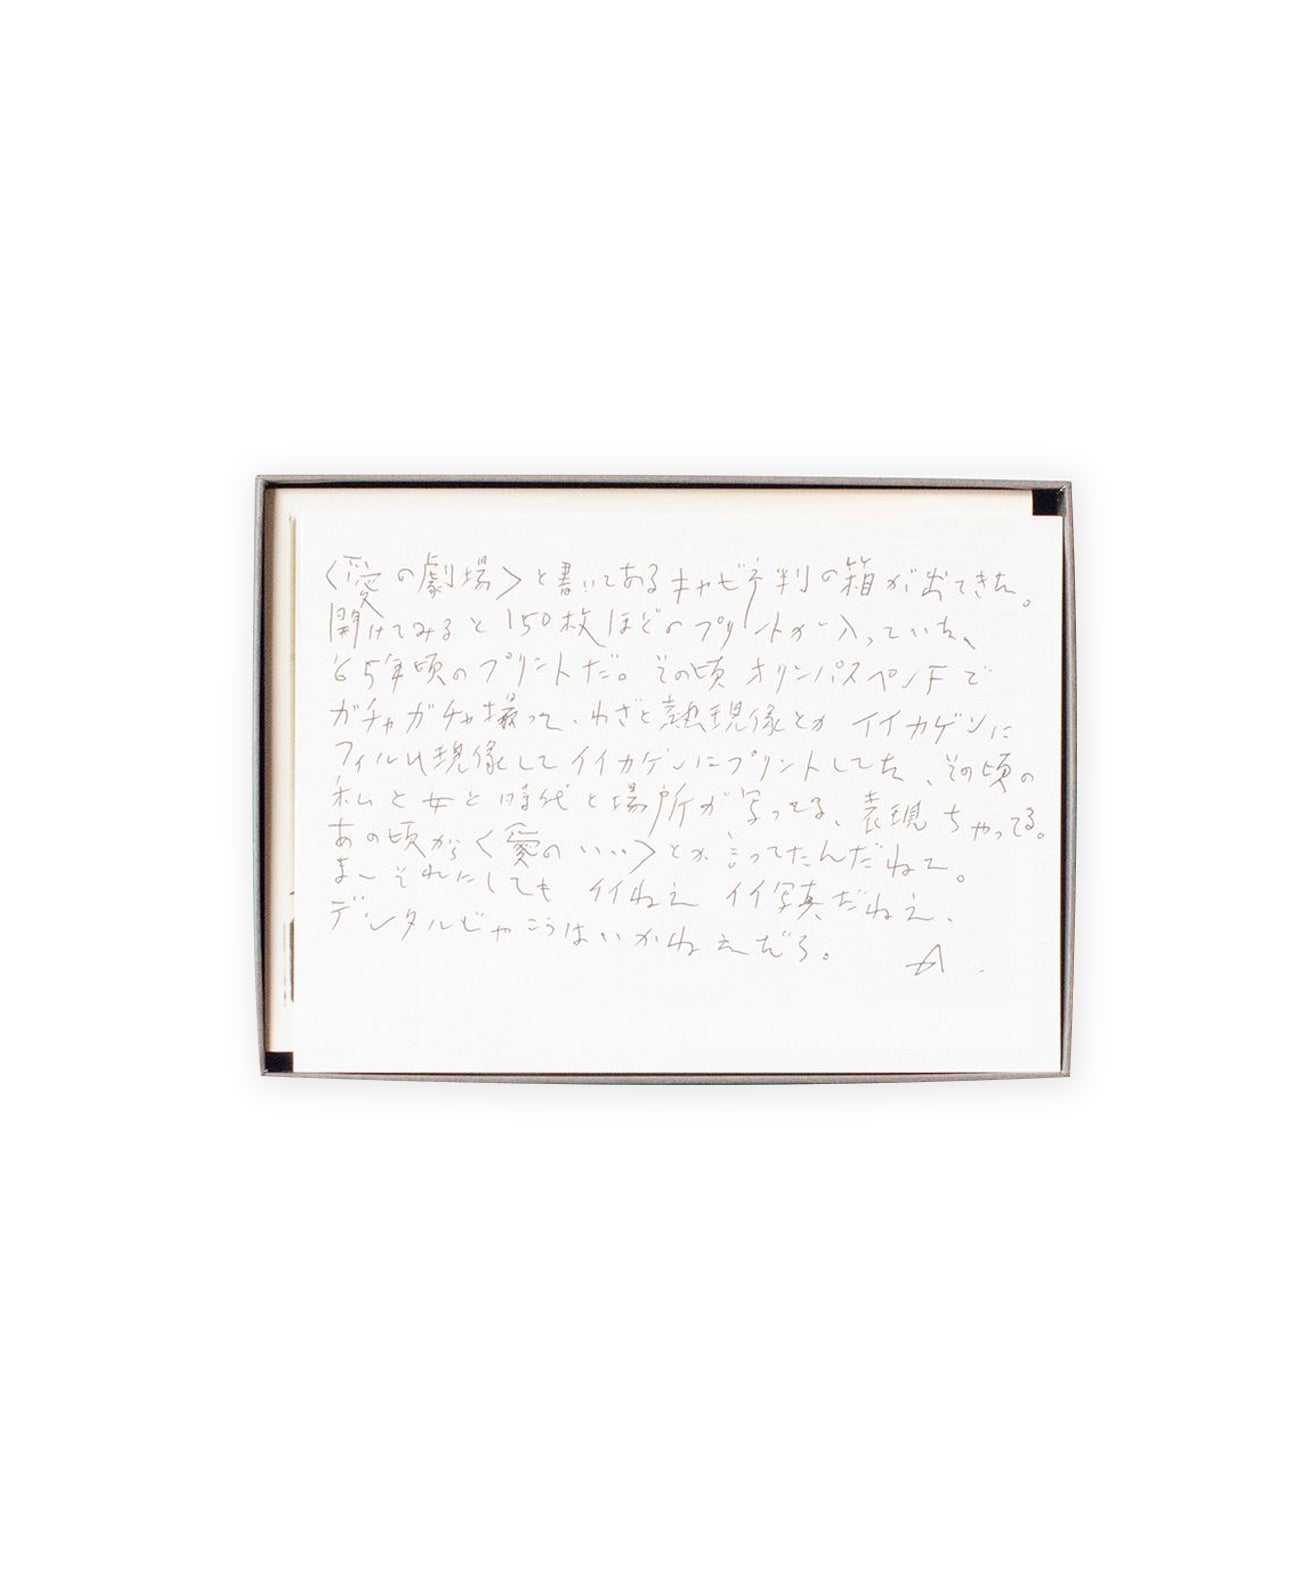 〈愛の劇場〉と書いてあるキャビネ判の箱が出てきた。
開けてみると150枚ほどのプリントが入っていた、
'65年頃のプリントだ。その頃オリンパスペンFで
ガチャガチャ撮って、わざと熱現像とかイイカゲンに
フィルム現像してイイカゲンにプリントしてた、その頃の
私と女と時代と場所が写ってる、表現しちゃってる。
あの頃から〈愛の〉とか言ってたんだねェ。
まーそれにしてもイイねェイイ写真だねェ、
デジタルじゃこうはいかねェだろ。
A.